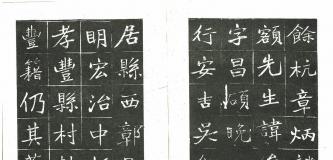 餘杭章炳
額先生諱
字昌碩晚
行安吉吳
居縣西鄣
明宏治中
孝豐縣村
豐籍仍其